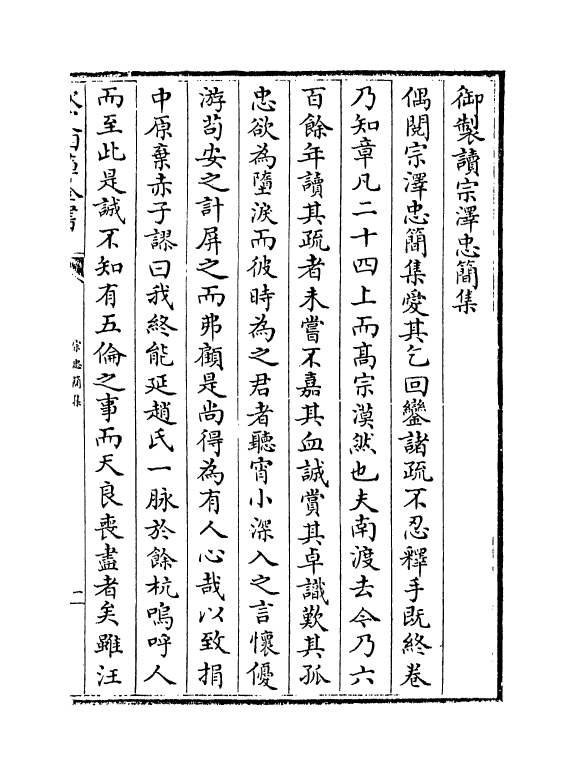 御製讀宗澤忠簡集
偶閱宗澤忠簡集愛其乞回鑾諸疏不忍釋手既終卷
乃知章凡二十四上而髙宗漠然也夫南渡去今乃六
百餘年讀其疏者未嘗不嘉其血誠賞其卓識歎其孤
忠欲為墮淚而彼時為之君者聽宵小深入之言懷優
游茍安之計屏之而弗顧是尚得為有人心哉以致捐
中原棄赤子謬曰我終能延趙氏一脉於餘杭嗚呼人
而至此是誠不知有五倫之事而天良喪盡者矣雖汪
宗忠簡集
二